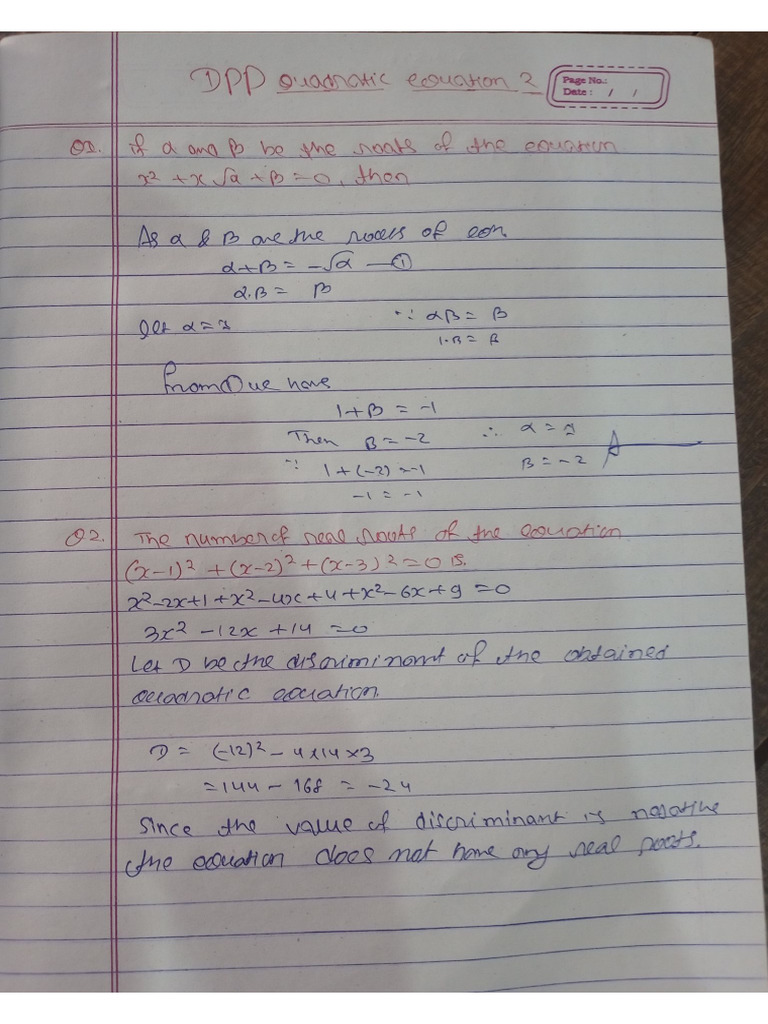 DPP quadratic equation 2
Page No.:
Date : / /
Q1. if α and β be the roots of the equation
x² + x √α + β = 0, then
As α & β are the roots of eqn.
α+β = -√α — ①
α.β = β
let α = 1 ∵ αβ = β
1.β = β
From ① we have
1 + β = -1
Then β = -2 ∴ α = 1
∵ 1 + (-2) = -1 β = -2
-1 = -1
Q2. The number of real roots of the equation
(x-1)² + (x-2)² + (x-3)² = 0 is.
x²-2x+1+x²-4x+4+x²-6x+9 = 0
3x² - 12x + 14 = 0
Let D be the discriminant of the obtained
quadratic equation.
D = (-12)² - 4×14×3
= 144 - 168 = -24
Since the value of discriminant is negative
the equation does not have any real roots.